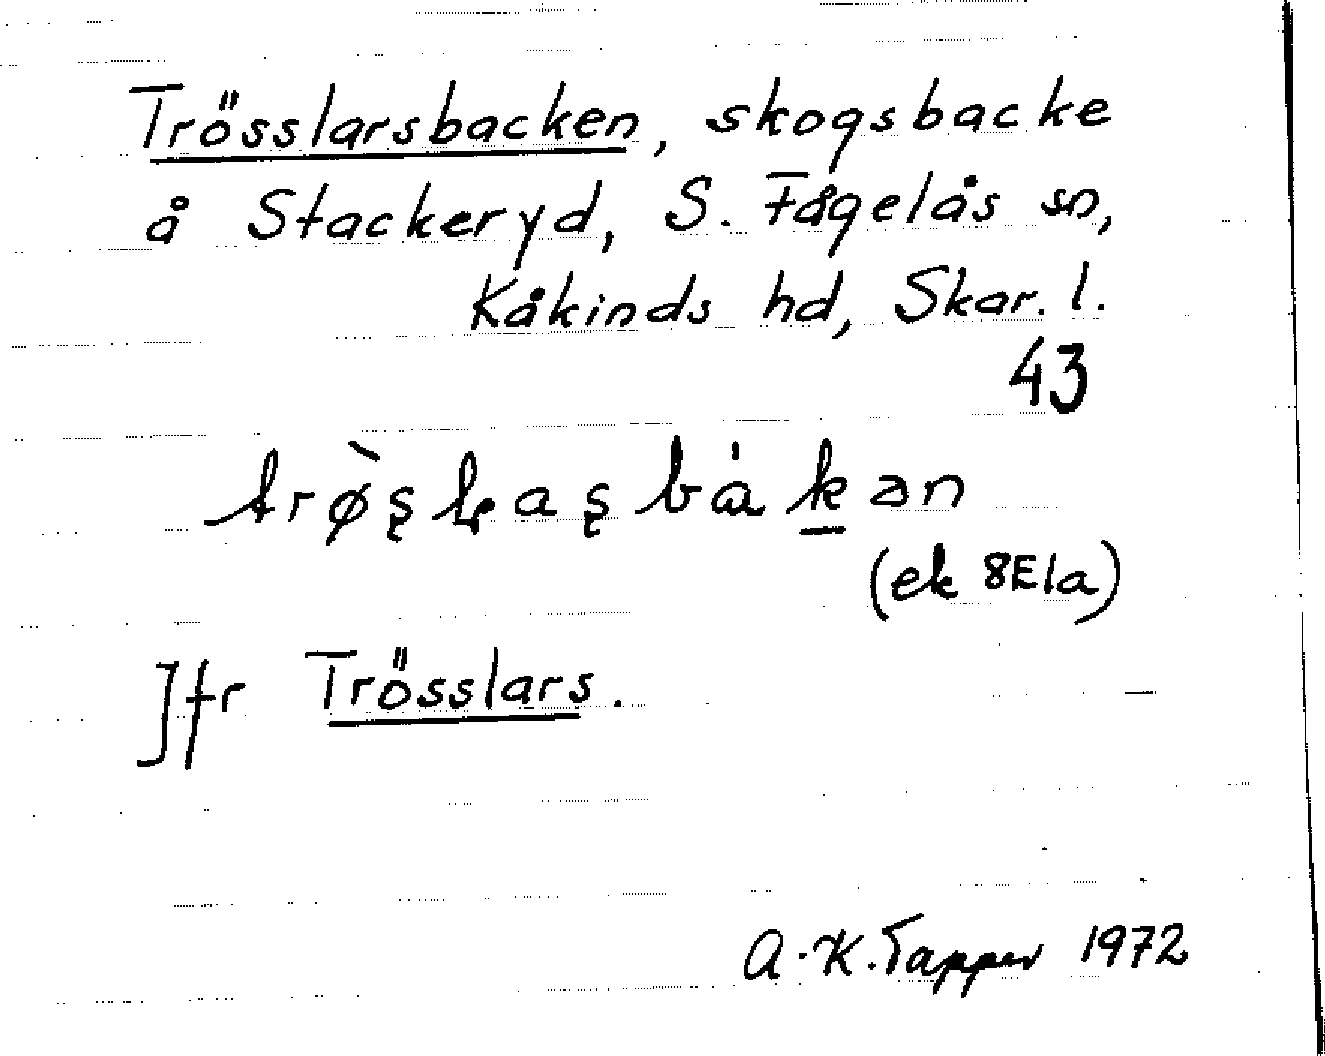 Trösslarsbacken, skogsbacke
å Stackeryd, S. Fågelås sn,
Kåkinds hd, Skar. l.
43
(ek 8E1a)
Jfr Trösslars.
A.-K. Tapper 1972